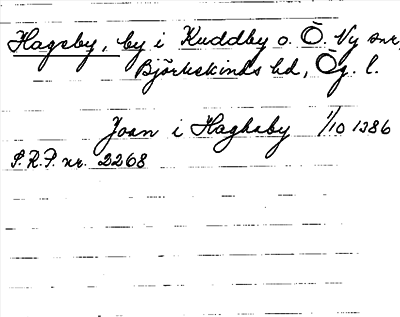 Hagsby, by i Kuddby o. Ö. Ny snr,
Björkekinds hd, Ög. l.
Joan i Haghsby 1/10 1386
S.R.P. nr. 2268